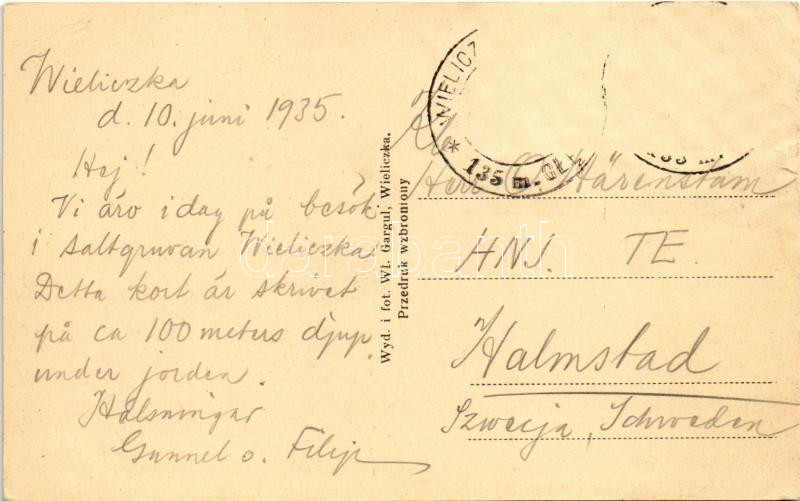 Wieliczka
d. 10. juni 1935.
Hej!
Vi äro i dag på besök
i saltgruvan Wieliczka.
Detta kort är skrivet
på ca 100 meters djup
under jorden.
Hälsningar
Gunnel o. Filip
Wyd. i fot. Wł. Gargul, Wieliczka.
Przedruk wzbroniony
WIELICZ
* 135 m. GŁ
135 m.
Herr Härenstam
Halmstad
Szwecja, Schweden
darabanth